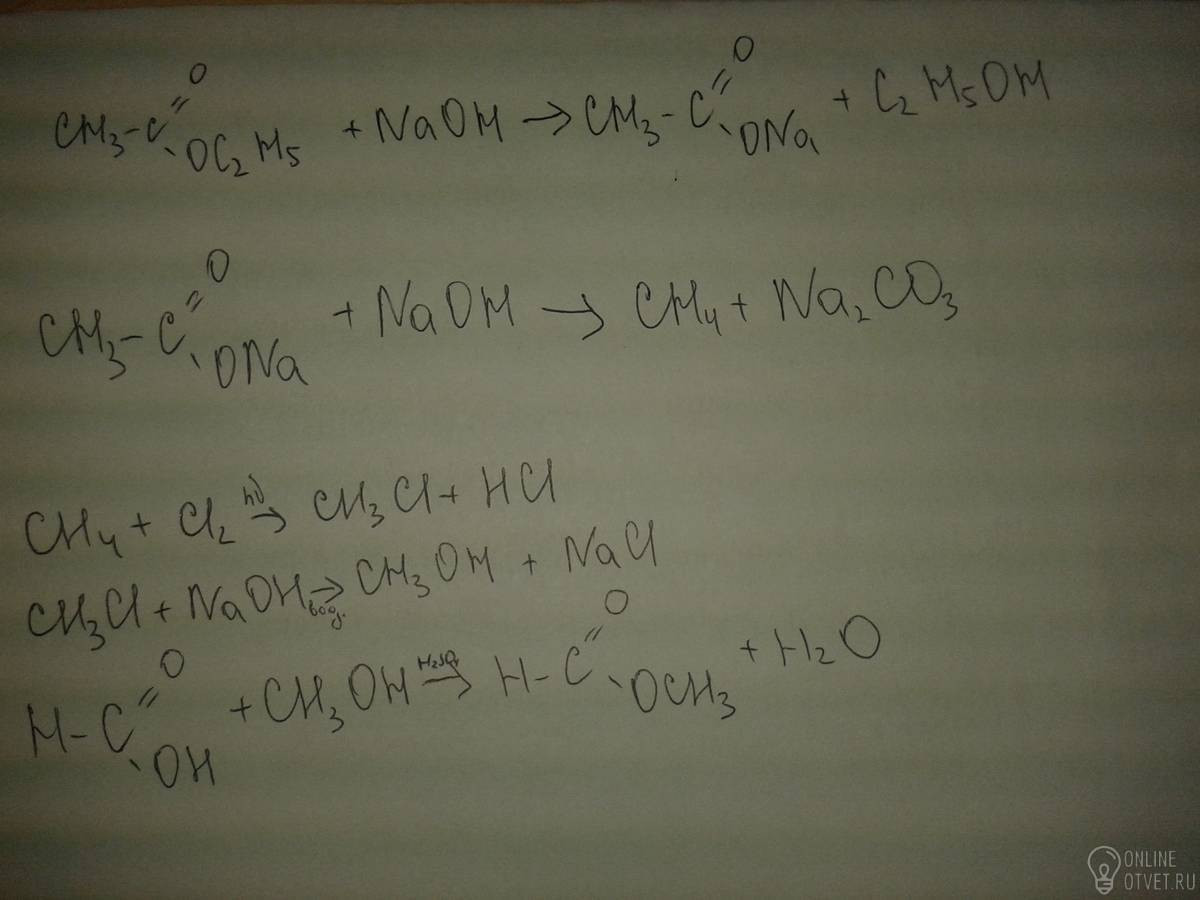 CH₃-C(=O)-OC₂H₅ + NaOH → CH₃-C(=O)-ONa + C₂H₅OH
CH₃-C(=O)-ONa + NaOH → CH₄ + Na₂CO₃
CH₄ + Cl₂ →(hν) CH₃Cl + HCl
CH₃Cl + NaOH →(вод.) CH₃OH + NaCl
H-C(=O)-OH + CH₃OH →(H₂SO₄) H-C(=O)-OCH₃ + H₂O
ONLINE
OTVET.RU